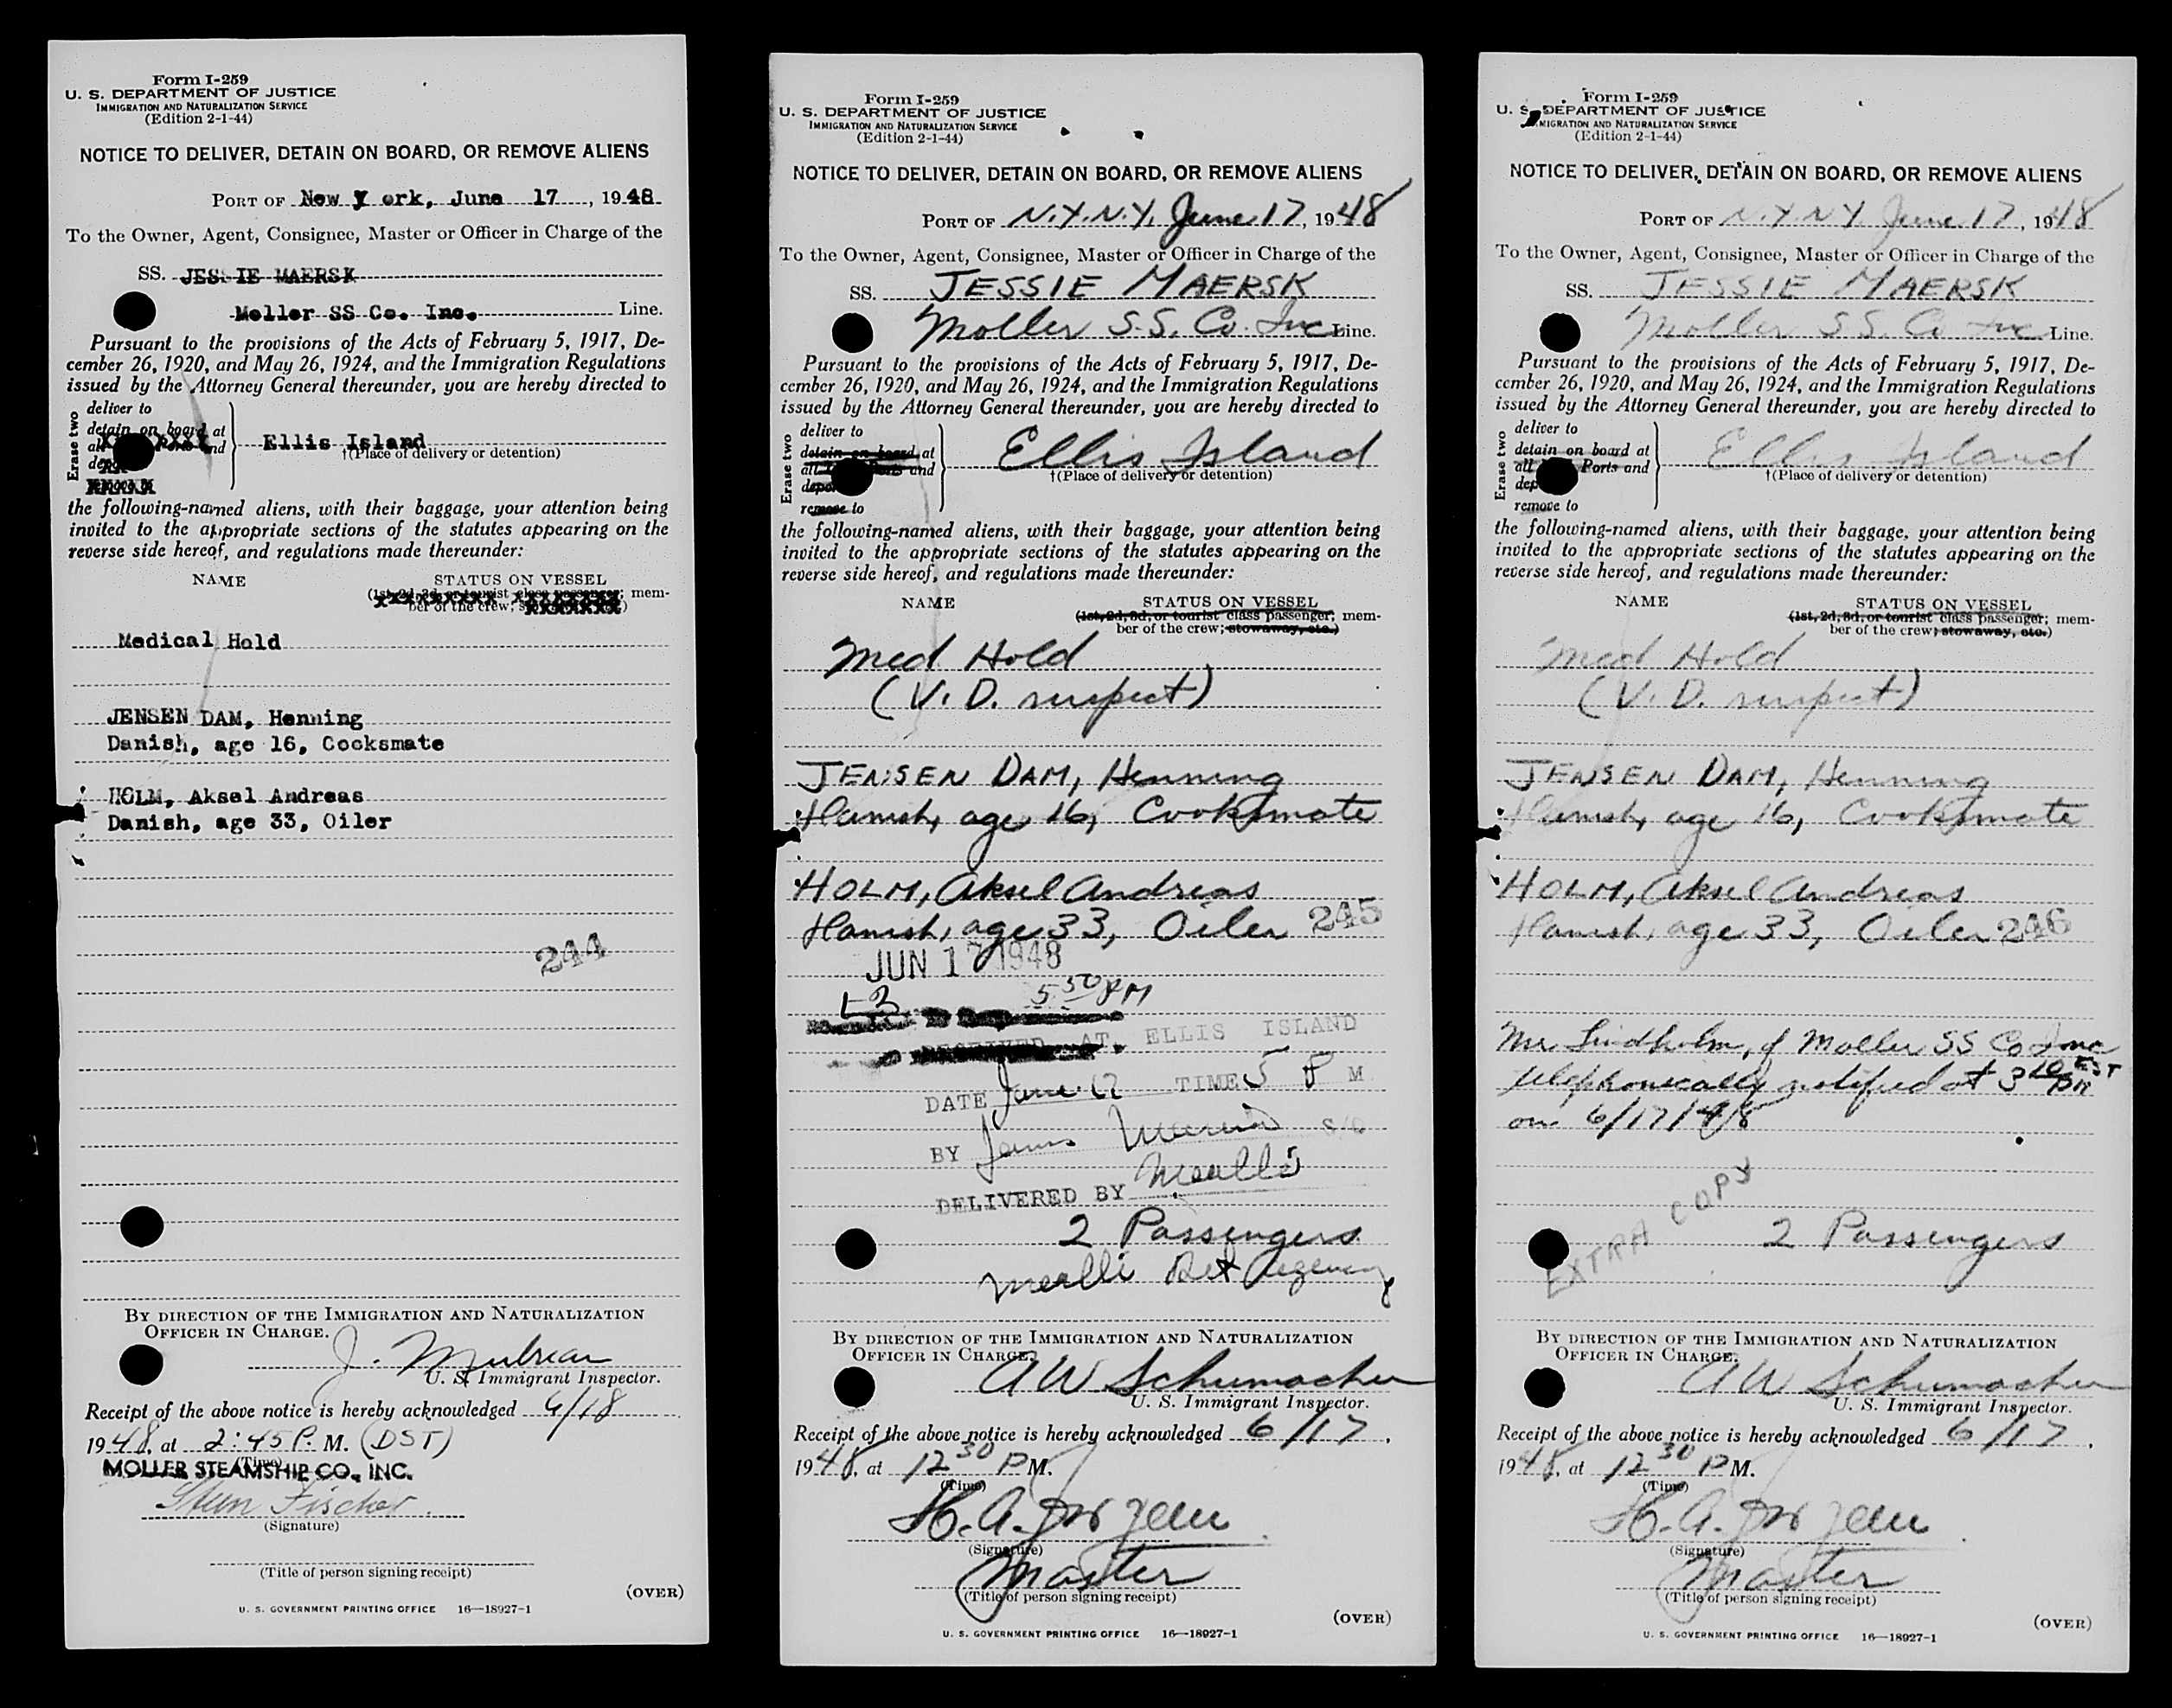 Form I-259
U. S. DEPARTMENT OF JUSTICE
IMMIGRATION AND NATURALIZATION SERVICE
(Edition 2-1-44)
NOTICE TO DELIVER, DETAIN ON BOARD, OR REMOVE ALIENS
PORT OF New York, June 17, 1948
To the Owner, Agent, Consignee, Master or Officer in Charge of the
SS. JESSIE MAERSK
Moller SS Co. Inc. Line.
Pursuant to the provisions of the Acts of February 5, 1917, De-
cember 26, 1920, and May 26, 1924, and the Immigration Regulations
issued by the Attorney General thereunder, you are hereby directed to
Erase two
deliver to
detain on board at
and
Ellis Island
†(Place of delivery or detention)
the following-named aliens, with their baggage, your attention being
invited to the appropriate sections of the statutes appearing on the
reverse side hereof, and regulations made thereunder:
NAME STATUS ON VESSEL
(1st, 2d, 3d, or tourist class passenger; mem-
ber of the crew;
Medical Hold
JENSEN DAM, Henning
Danish, age 16, Cooksmate
HOLM, Aksel Andreas
Danish, age 33, Oiler
244
BY DIRECTION OF THE IMMIGRATION AND NATURALIZATION
OFFICER IN CHARGE.
J.
U. S. Immigrant Inspector.
Receipt of the above notice is hereby acknowledged 6/18
1948, at 2:45 P. M. (DST)
(Time)
MOLLER STEAMSHIP CO., INC.
Fischer
(Signature)
(Title of person signing receipt)
(OVER)
U. S. GOVERNMENT PRINTING OFFICE 16—18927-1
Form I-259
U. S. DEPARTMENT OF JUSTICE
IMMIGRATION AND NATURALIZATION SERVICE
(Edition 2-1-44)
NOTICE TO DELIVER, DETAIN ON BOARD, OR REMOVE ALIENS
PORT OF N.Y. N.Y. June 17, 1948
To the Owner, Agent, Consignee, Master or Officer in Charge of the
SS. JESSIE MAERSK
Moller S.S. Co. Inc Line.
Pursuant to the provisions of the Acts of February 5, 1917, De-
cember 26, 1920, and May 26, 1924, and the Immigration Regulations
issued by the Attorney General thereunder, you are hereby directed to
Erase two
deliver to
detain on board at
all Ports and
remove to
Ellis Island
†(Place of delivery or detention)
the following-named aliens, with their baggage, your attention being
invited to the appropriate sections of the statutes appearing on the
reverse side hereof, and regulations made thereunder:
NAME STATUS ON VESSEL
(1st, 2d, 3d, or tourist class passenger; mem-
ber of the crew; stowaway, etc.)
Med Hold
(V. D. suspect)
JENSEN DAM, Henning
Danish, age 16, Cooksmate
HOLM, Aksel Andreas
Danish, age 33, Oiler 245
JUN 17 1948
5 30 PM
RECEIVED AT ELLIS ISLAND
DATE June 17 TIME 5 P M
BY James
DELIVERED BY Mealli
2 Passengers
Mealli Det Agency
BY DIRECTION OF THE IMMIGRATION AND NATURALIZATION
OFFICER IN CHARGE.
AW Schumacher
U. S. Immigrant Inspector.
Receipt of the above notice is hereby acknowledged 6/17,
1948, at 12 30 P M.
(Time)
H. A.
(Signature)
Master
(Title of person signing receipt)
(OVER)
U. S. GOVERNMENT PRINTING OFFICE 16—18927-1
Form I-259
U. S. DEPARTMENT OF JUSTICE
IMMIGRATION AND NATURALIZATION SERVICE
(Edition 2-1-44)
NOTICE TO DELIVER, DETAIN ON BOARD, OR REMOVE ALIENS
PORT OF N.Y. N.Y. June 17, 1948
To the Owner, Agent, Consignee, Master or Officer in Charge of the
SS. JESSIE MAERSK
Moller S.S. Co Inc Line.
Pursuant to the provisions of the Acts of February 5, 1917, De-
cember 26, 1920, and May 26, 1924, and the Immigration Regulations
issued by the Attorney General thereunder, you are hereby directed to
Erase two
deliver to
detain on board at
all Ports and
remove to
Ellis Island
†(Place of delivery or detention)
the following-named aliens, with their baggage, your attention being
invited to the appropriate sections of the statutes appearing on the
reverse side hereof, and regulations made thereunder:
NAME STATUS ON VESSEL
(1st, 2d, 3d, or tourist class passenger; mem-
ber of the crew; stowaway, etc.)
Med Hold
(V. D. suspect)
JENSEN DAM, Henning
Danish, age 16, Cooksmate
HOLM, Aksel Andreas
Danish, age 33, Oiler 246
Mr Lindholm, of Moller SS Co Inc
telephonically notified at 3 10 PM EST
on 6/17/48
EXTRA COPY
2 Passengers
BY DIRECTION OF THE IMMIGRATION AND NATURALIZATION
OFFICER IN CHARGE.
AW Schumacher
U. S. Immigrant Inspector.
Receipt of the above notice is hereby acknowledged 6/17,
1948, at 12 30 P M.
(Time)
H. A.
(Signature)
Master
(Title of person signing receipt)
(OVER)
U. S. GOVERNMENT PRINTING OFFICE 16—18927-1